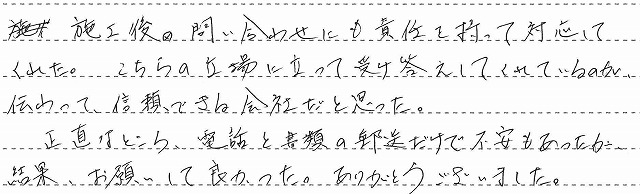 施工後の問い合わせにも責任を持って対応して
くれた。こちらの立場に立って受け答えしてくれているのが、
伝わって、信頼できる会社だと思った。
正直なところ、電話と書類の郵送だけで不安もあったが、
結果、お願いして良かった。ありがとうございました。